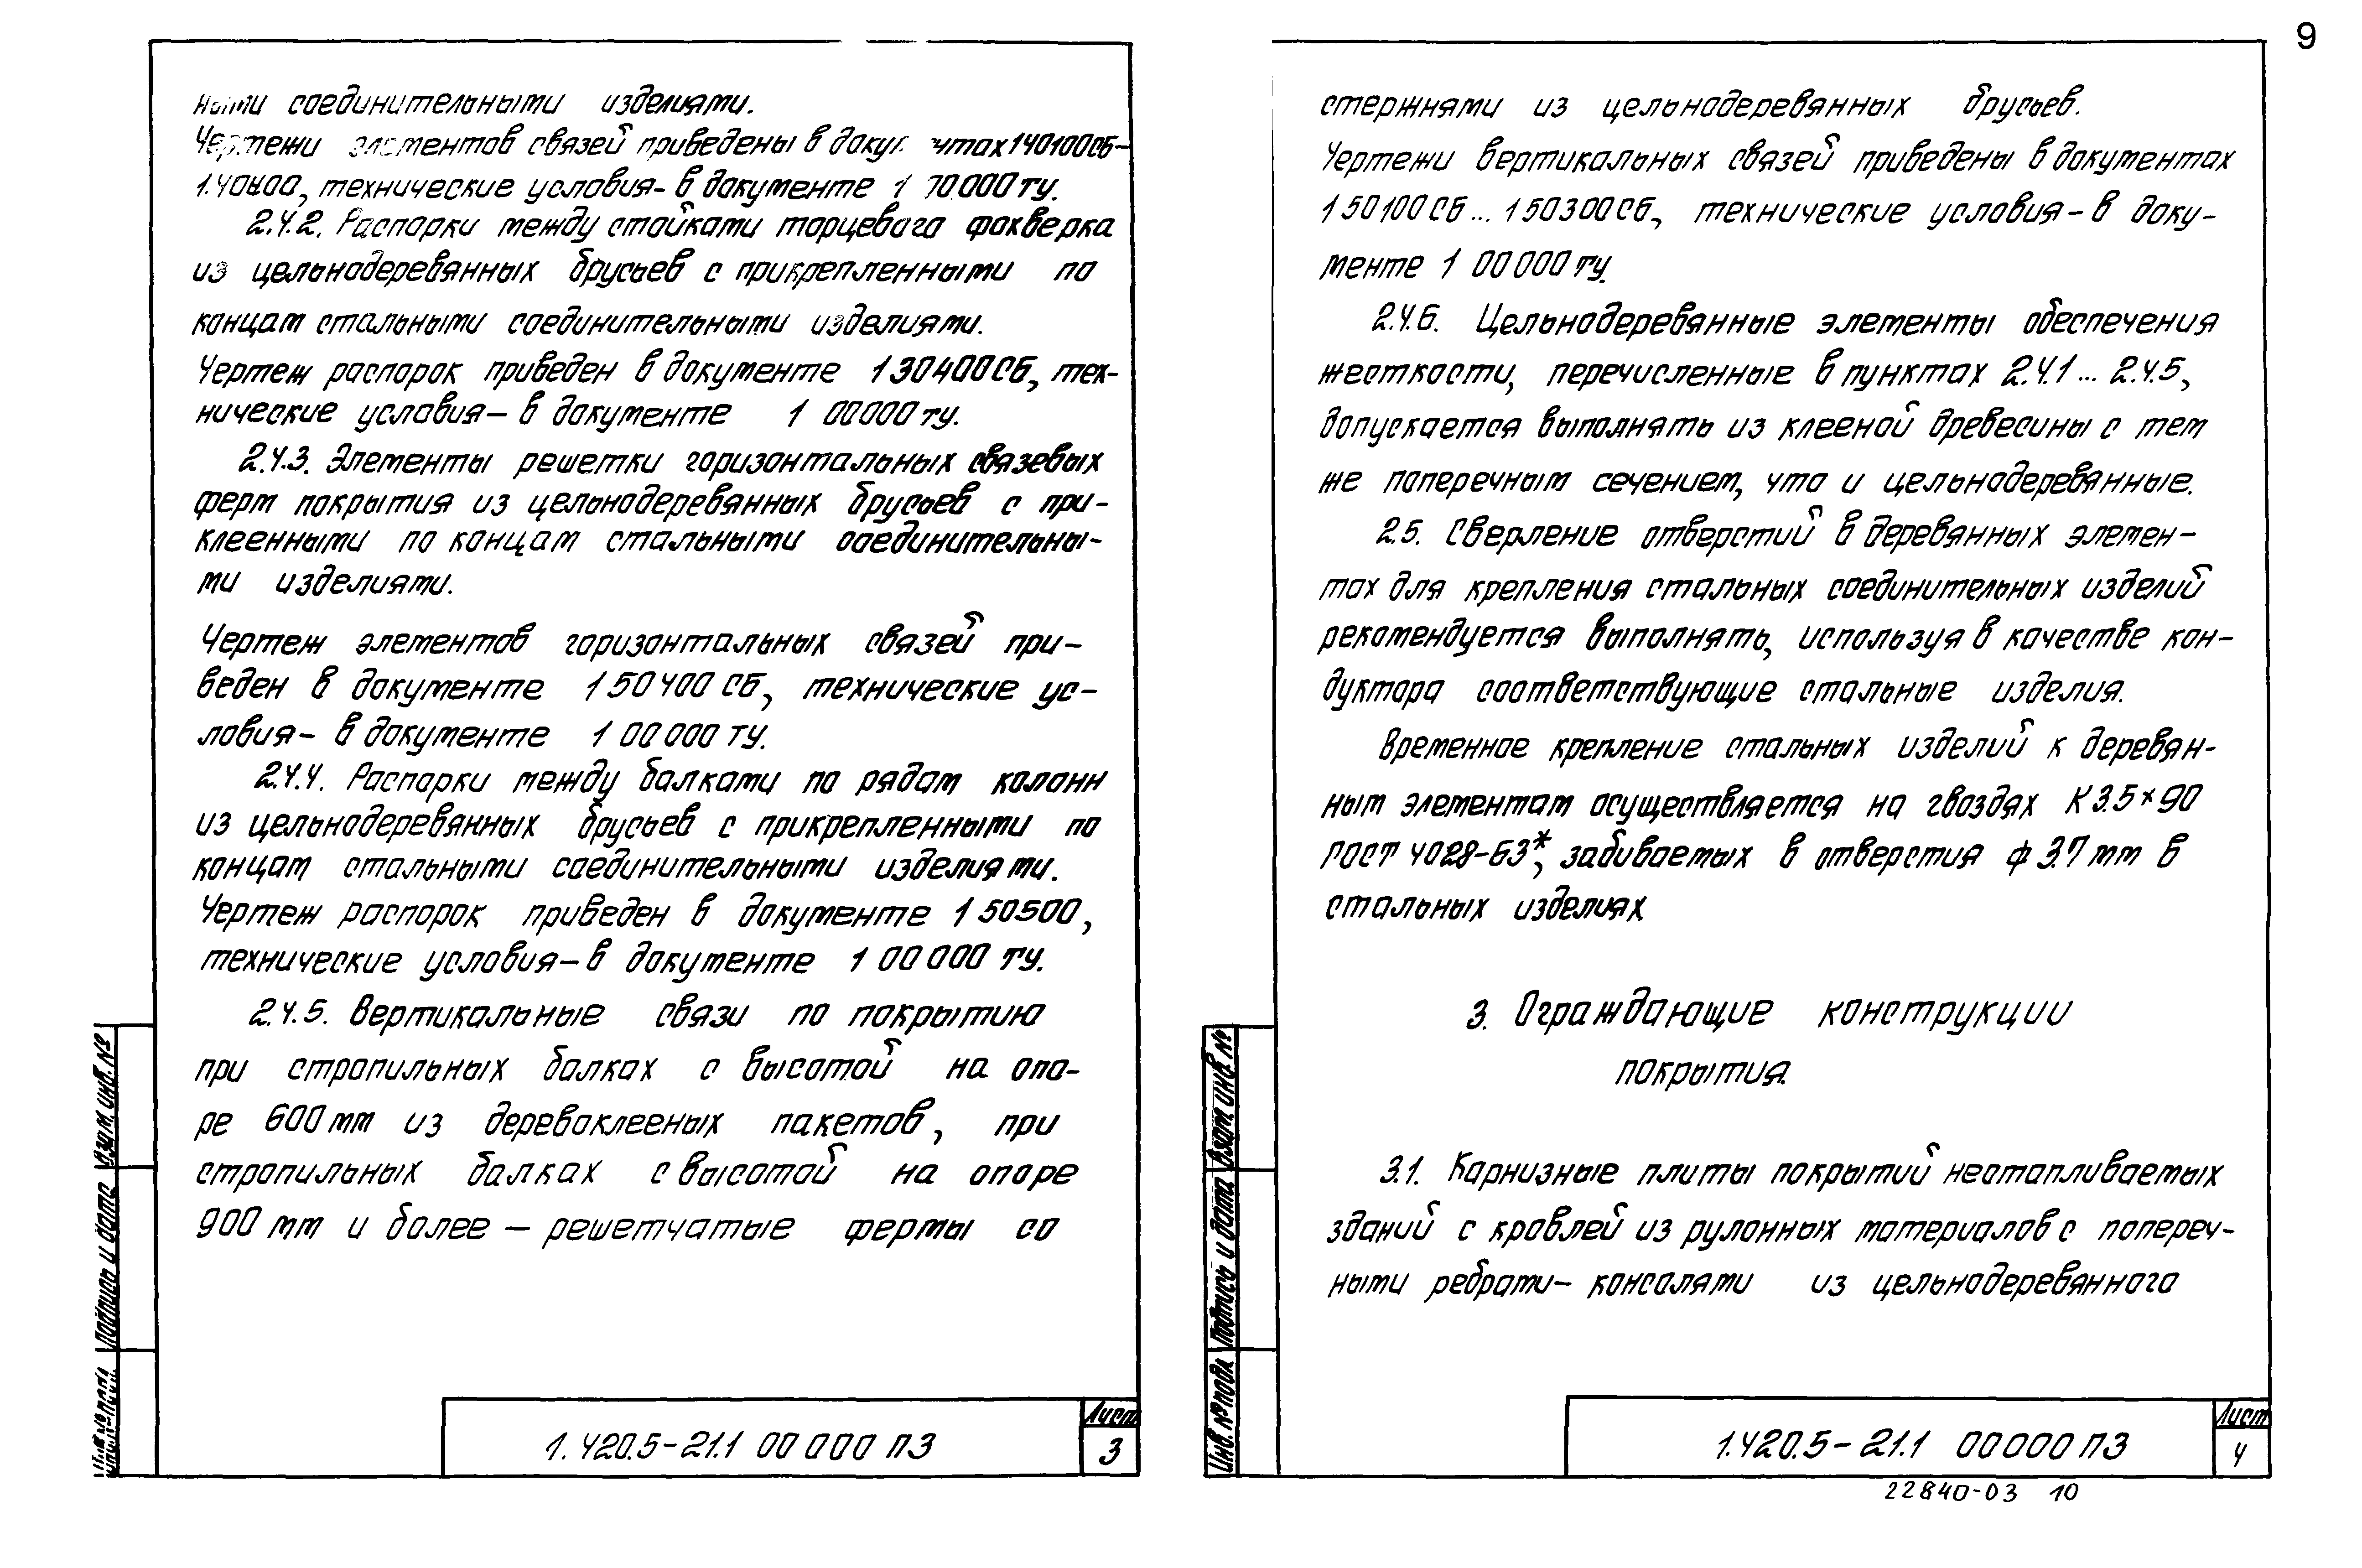 9
ными соединительными изделиями.
Чертежи элементов связей приведены в 140100СБ-
технические условия- в документе
2.4.2. Распорки между стойками торцевого фахверка
из цельнодеревянных брусьев с прикрепленными по
концам стальными соединительными изделиями.
Чертеж распорок приведен в документе 130400СБ, тех-
нические условия- в документе 1 00000 ТУ.
2.4.3. Элементы решетки горизонтальных связевых
ферм покрытия из цельнодеревянных брусьев с при-
клеенными по концам стальными соединительны-
ми изделиями.
Чертеж элементов горизонтальных связей при-
веден в документе 150400 СБ, технические ус-
ловия- в документе 1 00 000 ТУ.
2.4.4. Распорки между балками по рядам колонн
из цельнодеревянных брусьев с прикрепленными по
концам стальными соединительными изделиями.
Чертеж распорок приведен в документе 1 50500,
технические условия- в документе 1 00 000 ТУ.
2.4.5. Вертикальные связи по покрытию
при стропильных балках с высотой на опо-
ре 600 мм из деревоклееных пакетов, при
стропильных балках с высотой на опоре
900 мм и более – решетчатые фермы со
1.420.5-21.1 00 000 ПЗ
Лист
3
Взам. инв. №
Подпись и дата
стержнями из цельнодеревянных брусьев.
Чертежи вертикальных связей приведены в документах
150100СБ... 150300СБ, технические условия- в доку-
менте 1 00 000 ТУ.
2.4.6. Цельнодеревянные элементы обеспечения
жесткости, перечисленные в пунктах 2.4.1... 2.4.5,
допускается выполнять из клееной древесины с тем
же поперечным сечением, что и цельнодеревянные.
2.5. Сверление отверстий в деревянных элемен-
тах для крепления стальных соединительных изделий
рекомендуется выполнять, используя в качестве кон-
дуктора соответствующие стальные изделия.
Временное крепление стальных изделий к деревян-
ным элементам осуществляется на гвоздях К 3.5×90
ГОСТ 4028-63*, забиваемых в отверстия ф 3.7 мм в
стальных изделиях
3. Ограждающие конструкции
покрытия.
3.1. Карнизные плиты покрытий неотапливаемых
зданий с кровлей из рулонных материалов с попереч-
ными ребрами- консолями из цельнодеревянного
1.420.5- 21.1 00000 ПЗ
Лист
4
Взам. инв. №
Подпись и дата
Инв. № подл.
22840-03 10